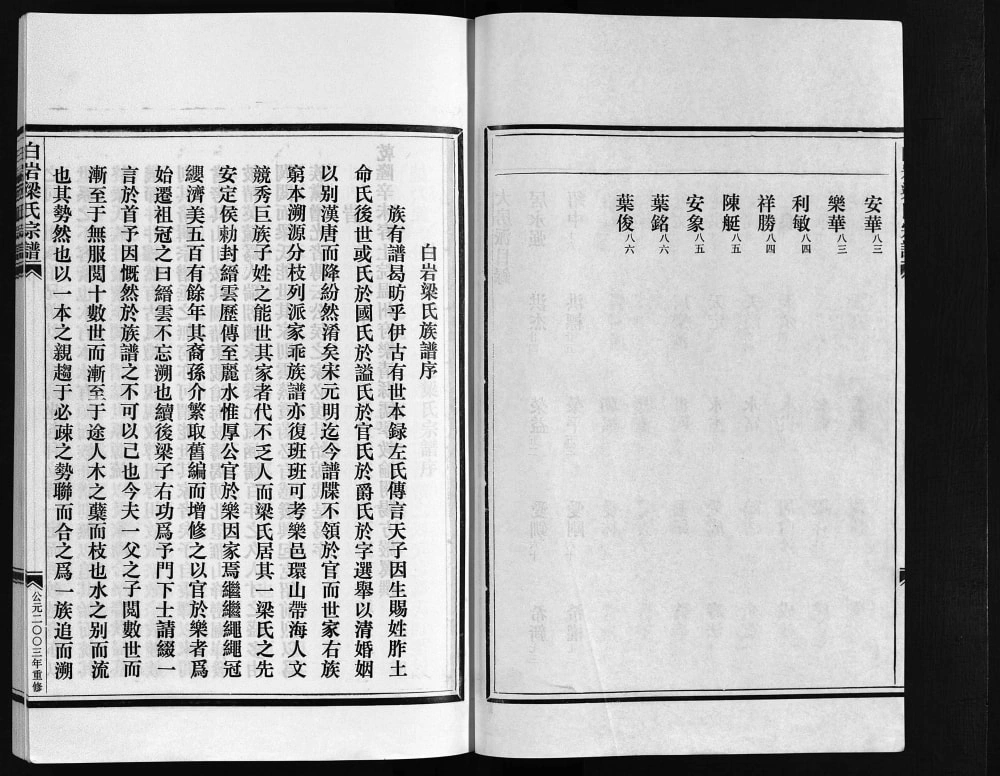 安華八三
樂華八三
利敏八四
祥勝八四
陳艇八五
安象八五
葉銘八六
葉俊八六
白岩梁氏族譜序
族有譜曷昉乎伊古有世本録左氏傳言天子因生賜姓胙土
命氏後世或氏於國氏於謚氏於官氏於爵氏於字選舉以清婚姻
以别漢唐而降紛然淆矣宋元明迄今譜牒不領於官而世家右族
窮本溯源分枝列派家乖族譜亦復班班可考樂邑環山帶海人文
競秀巨族子姓之能世其家者代不乏人而梁氏居其一梁氏之先
安定侯勅封縉雲歷傳至麗水惟厚公官於樂因家焉繼繼繩繩冠
纓濟美五百有餘年其裔孫介繁取舊編而增修之以官於樂者爲
始遷祖冠之曰縉雲不忘溯也續後梁子右功爲予門下士請綴一
言於首予因慨然於族譜之不可以已也今夫一父之子閲數世而
漸至于無服閲十數世而漸至于途人木之蘖而枝也水之别而流
也其勢然也以一本之親趨于必疎之勢聯而合之爲一族追而溯
白岩梁氏宗譜
公元二〇〇三年重修